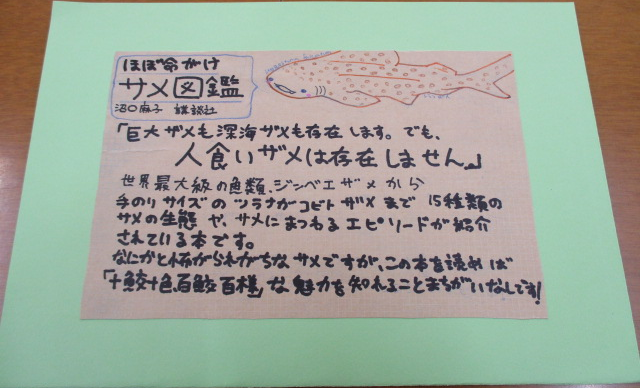 ほぼ命がけ
サメ図鑑
沼口麻子 講談社
「巨大ザメも深海ザメも存在します。でも、
人食いザメは存在しません。」
世界最大級の魚類、ジンベエザメから
手のりサイズのツラナガコビトザメまで 15種類の
サメの生態や、サメにまつわるエピソードが紹介
されている本です。
なにかと怖がられがちなサメですが、この本を読めば
「十鮫十色、百鮫百様」な魅力を知れることまちがいなしです!